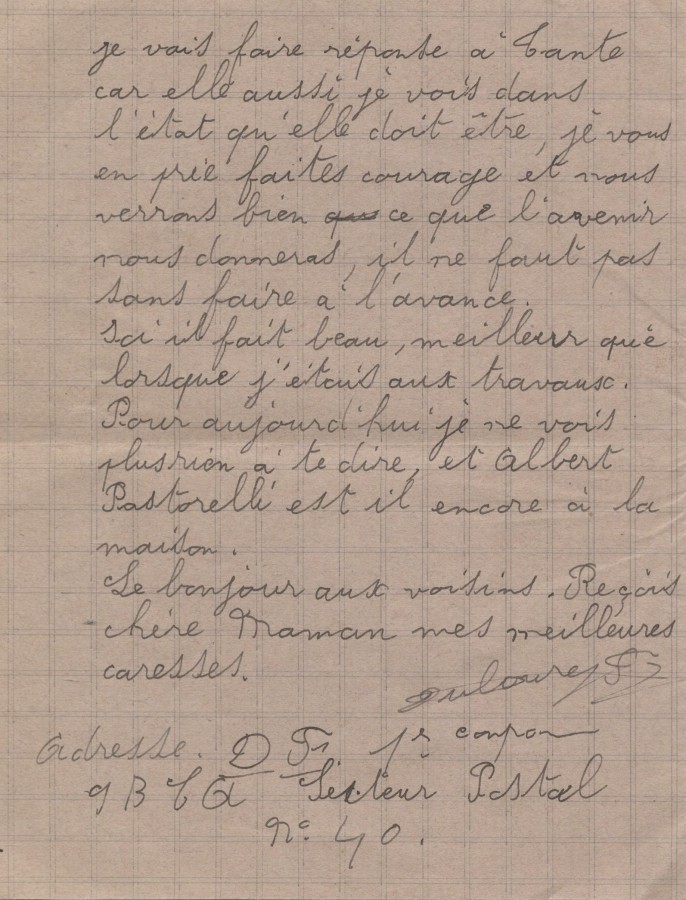 je vais faire réponse à Tante
car elle aussi je vois dans
l'état qu'elle doit être, je vous
en prie faites courage et nous
verrons bien ce que l'avenir
nous donneras, il ne faut pas
sans faire à l'avance.
Ici il fait beau, meilleur que
lorsque j'étais aux travaux.
Pour aujourd'hui je ne vois
plus rien à te dire, et Albert
Pastorelli est il encore à la
maison.
Le bonjour aux voisins. Reçois
chère Maman mes meilleures
caresses.
Adresse. D Fs 1r
9 B C A Secteur Postal
No 40.